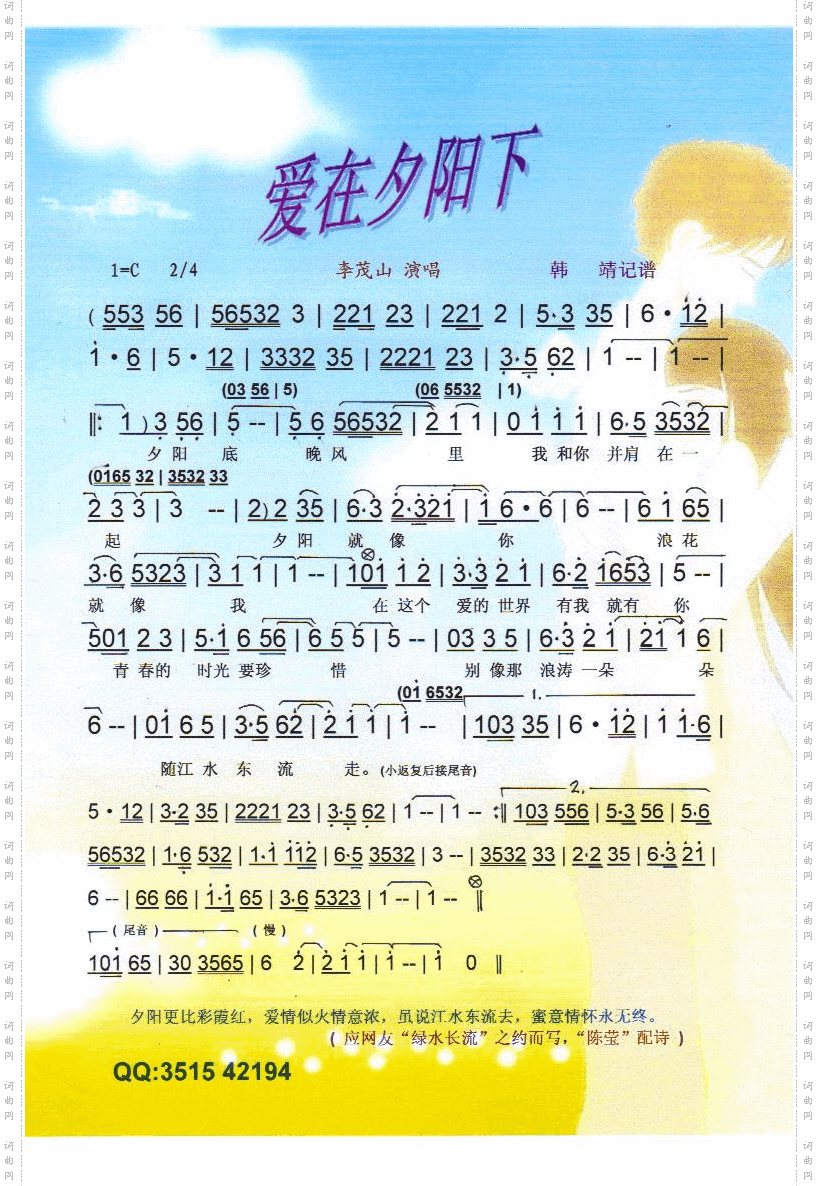 爱在夕阳下
1=C 2/4 李茂山 演唱 韩 靖记谱
( 553 56 | 56532 3 | 221 23 | 221 2 | 5·3 35 | 6 · 12 |
1 · 6 | 5 · 12 | 3332 35 | 2221 23 | 3·5 62 | 1 -- | 1 -- |
(03 56 | 5) (06 5532 | 1)
‖: 1 ) 3 56 | 5 -- | 5 6 56532 | 2 1 1 | 0 1 1 1 | 6·5 3532 |
夕 阳 底 晚 风 里 我 和你 并肩 在 一
(0165 32 | 3532 33
2 3 3 | 3 -- | 2) 2 35 | 6·3 2·321 | 1 6 · 6 | 6 -- | 6 1 65 |
起 夕 阳 就 像 你 浪 花
3·6 5323 | 3 1 1 | 1 -- | 101 1 2 | 3·3 2 1 | 6·2 1653 | 5 -- |
就 像 我 在 这个 爱的 世界 有我 就有 你
501 2 3 | 5·1 6 56 | 6 5 5 | 5 -- | 03 3 5 | 6·3 2 1 | 21 1 6 |
青 春的 时光 要珍 惜 别 像那 浪涛 一朵 朵
(01 6532 1.
6 -- | 01 6 5 | 3·5 62 | 2 1 1 | 1 -- | 103 35 | 6 · 12 | 1 1·6 |
随江 水 东 流 走。(小返复后接尾音)
2.
5 · 12 | 3·2 35 | 2221 23 | 3·5 62 | 1 -- | 1 -- :‖ 103 556 | 5·3 56 | 5·6
56532 | 1·6 532 | 1·1 112 | 6·5 3532 | 3 -- | 3532 33 | 2·2 35 | 6·3 21 |
6 -- | 66 66 | 1·1 65 | 3·6 5323 | 1 -- | 1 -- ‖
( 尾音 ) ( 慢 )
101 65 | 30 3565 | 6 2 | 2 1 1 | 1 -- | 1 0 ‖
夕阳更比彩霞红，爱情似火情意浓，虽说江水东流去，蜜意情怀永无终。
( 应网友“绿水长流”之约而写，“陈莹”配诗 )
QQ:3515 42194